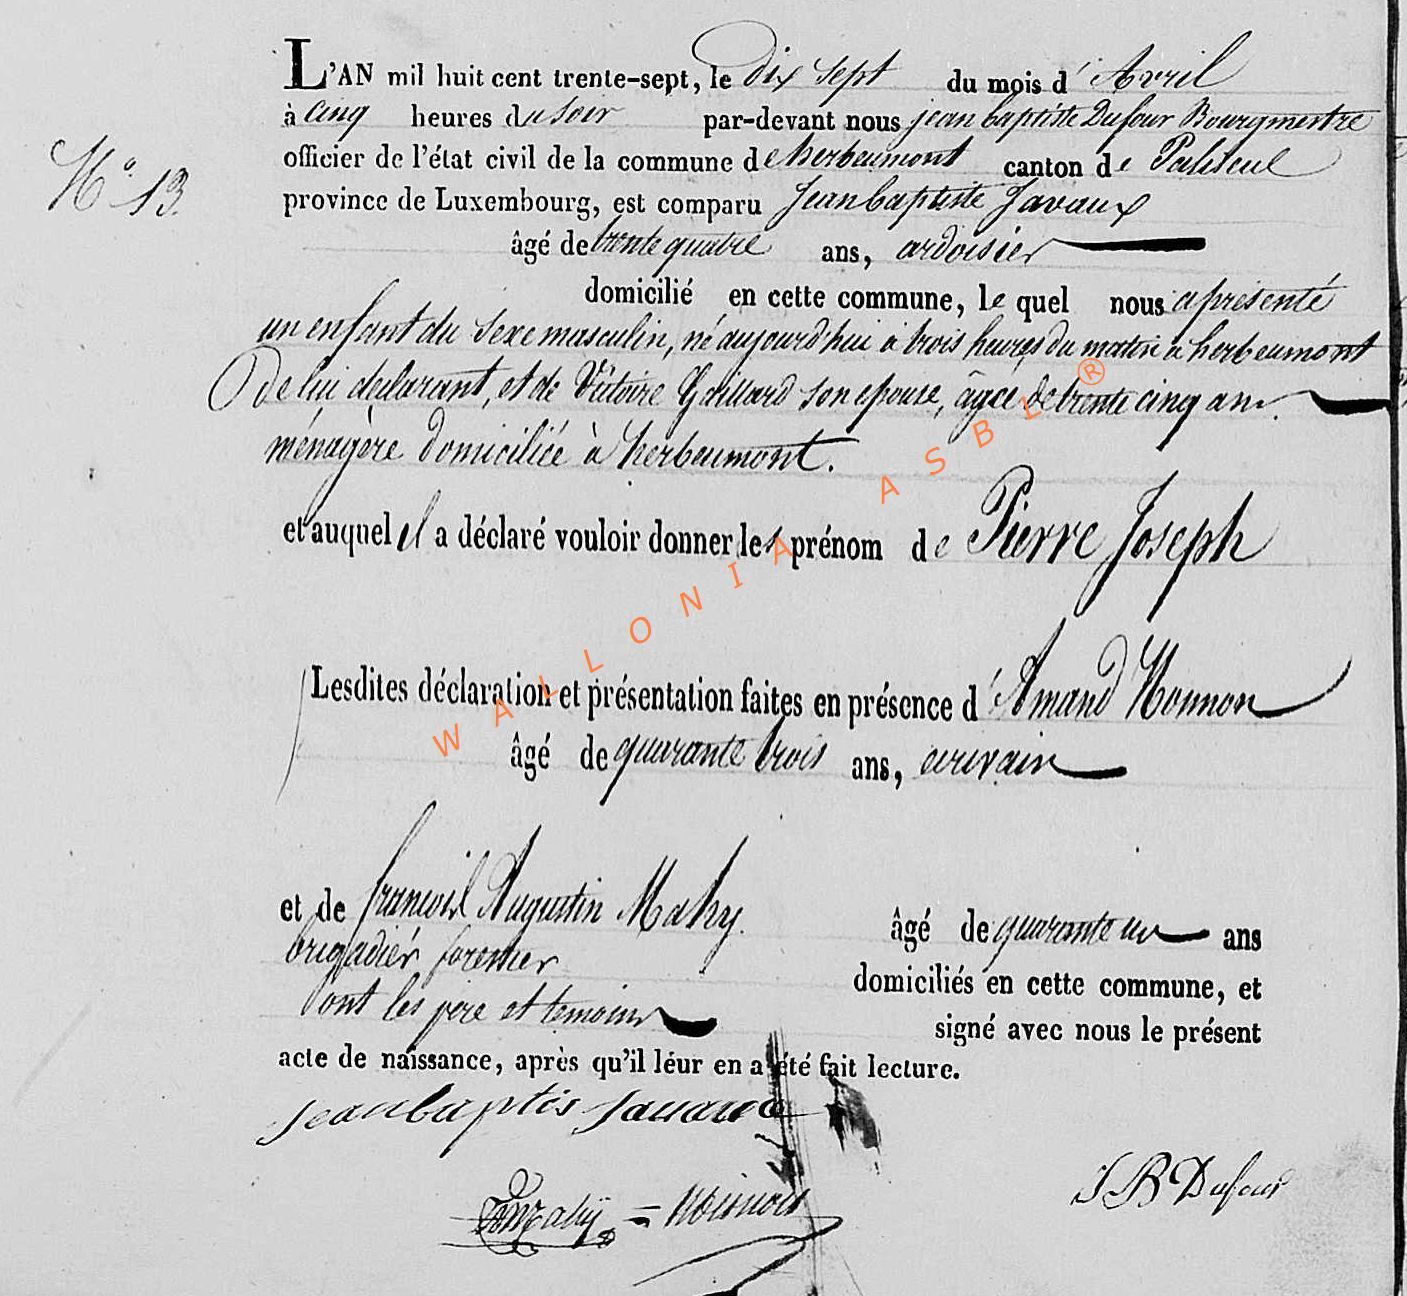 N° 13.
L'AN mil huit cent trente-sept, le dix sept du mois d'Avril
à cinq heures du soir par-devant nous jean baptiste Dufour Bourgmestre
officier de l'état civil de la commune de herbeumont canton de Paliseul
province de Luxembourg, est comparu Jean baptiste Javaux
âgé de trente quatre ans, ardoisier
domicilié en cette commune, le quel nous a présenté
un enfant du sexe masculin, né aujourd'hui à trois heures du matin a herbeumont
De lui déclarant, et de Victoire Gaillard son epouse, âgée de trente cinq ans.
ménagère domiciliée à herbeumont.
et auquel il a déclaré vouloir donner les prénom de Pierre Joseph
Lesdites déclaration et présentation faites en présence d'Amand
âgé de quarante trois ans, ecrivain
et de francois Augustin Mahy. âgé de quarante un ans
brigadiér forestier
domiciliés en cette commune, et
Dont les père et temoins
signé avec nous le présent
acte de naissance, après qu'il léur en a été fait lecture.
jean baptis Javaux
J B Dufour
WALLONIA ASBL ®